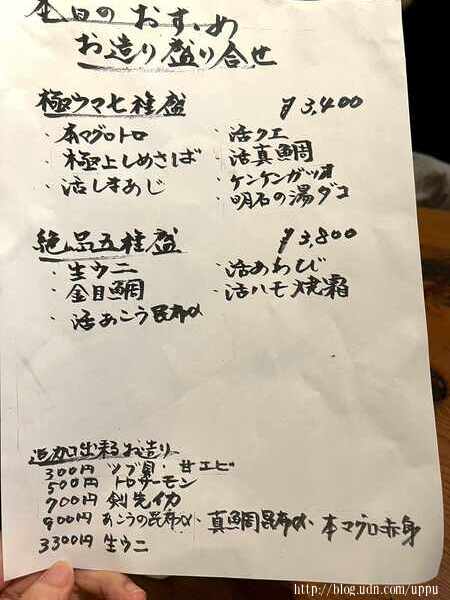 本日のおすすめ
お造り盛り合せ
極ウマ七種盛 ¥3,400
・本マグロトロ ・活クエ
・極上しめさば ・活真鯛
・活しまあじ ・ケンケンガツオ
・明石の湯ダコ
絶品五種盛 ¥3,800
・生ウニ ・活あわび
・金目鯛 ・活ハモ焼霜
・活あこう昆布〆
追加出来るお造り
300円 ツブ貝・甘エビ
500円 トロサーモン
700円 剣先イカ
900円 あこうの昆布〆・真鯛昆布〆・本マグロ赤身
3300円 生ウニ
http://blog.udn.com/uppu